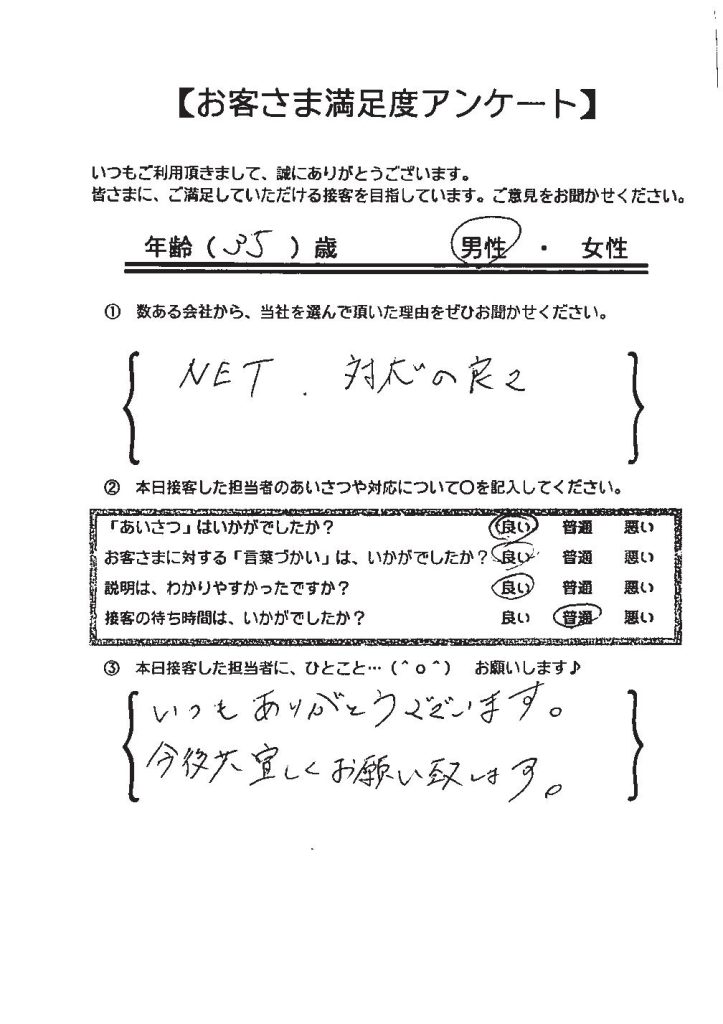 【お客さま満足度アンケート】
いつもご利用頂きまして、誠にありがとうございます。
皆さまに、ご満足していただける接客を目指しています。ご意見をお聞かせください。
年齢（35）歳 男性 ・ 女性
① 数ある会社から、当社を選んで頂いた理由をぜひお聞かせください。
NET . 対応の良さ
② 本日接客した担当者のあいさつや対応について〇を記入してください。
「あいさつ」はいかがでしたか？ 良い 普通 悪い
お客さまに対する「言葉づかい」は、いかがでしたか？ 良い 普通 悪い
説明は、わかりやすかったですか？ 良い 普通 悪い
接客の待ち時間は、いかがでしたか？ 良い 普通 悪い
③ 本日接客した担当者に、ひとこと…（＾ｏ＾） お願いします♪
いつもありがとうございます。
今後共宜しくお願い致します。